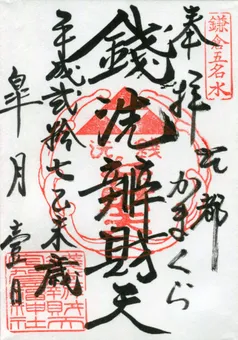 鎌倉五名水
奉拝
古都
かまくら
銭洗辨財天
平成貳拾七乙未歳
皐月
壹日